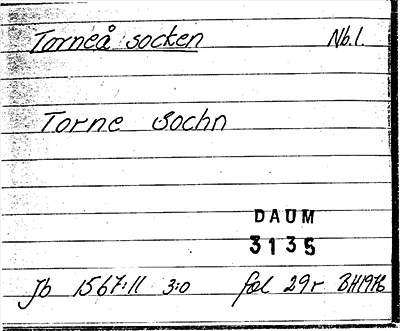 Torneå socken Nb.l.
Torne Sochn
DAUM
3135
Jb 1567:11 3:0 fol 29r BH1976